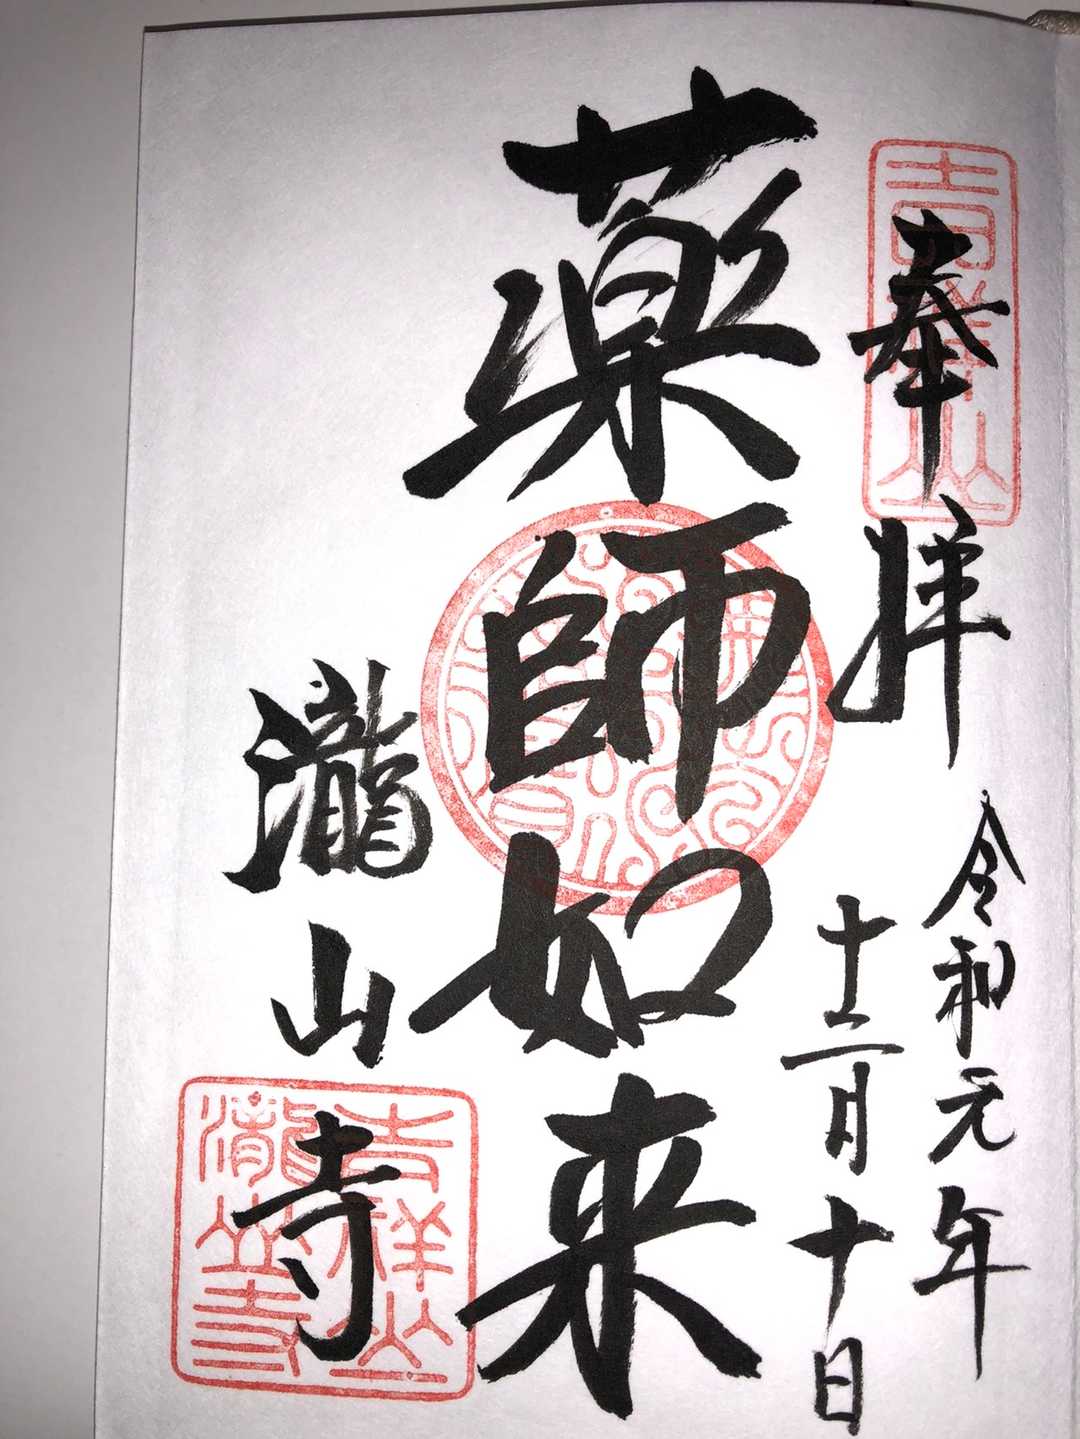 奉拝
令和元年
十二月十日
薬師如来
瀧山寺
吉祥山
吉祥山
瀧山寺